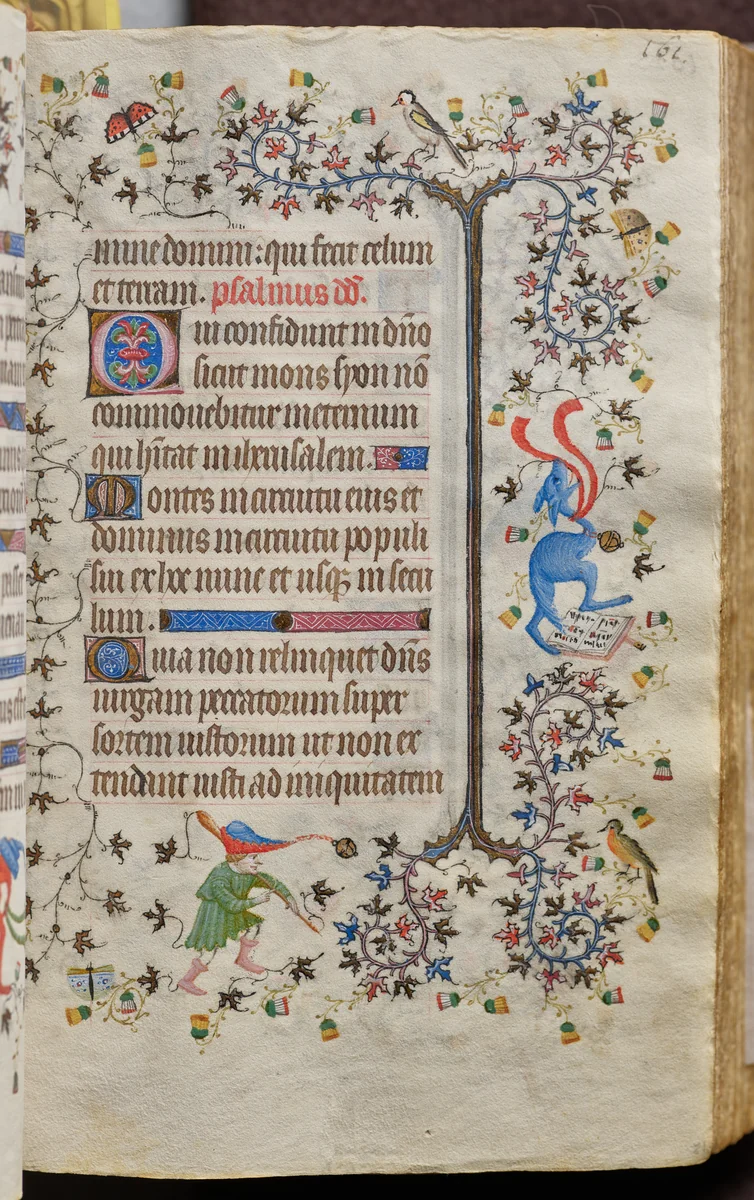 161
mine domini: qui fecit celum
et terram. psalmus dd̄.
Qui confidunt in dño
sicut mons syon nō
commouebitur in eternum
qui hītat in iherusalem.
Montes in circuitu eius et
dominus in circuitu populi
sui ex hoc nunc et usqꝫ in secu
lum.
Quia non relinquet dñs
uirgam peccatorum super
sortem iustorum ut non ex
tendant iusti ad iniquitatem